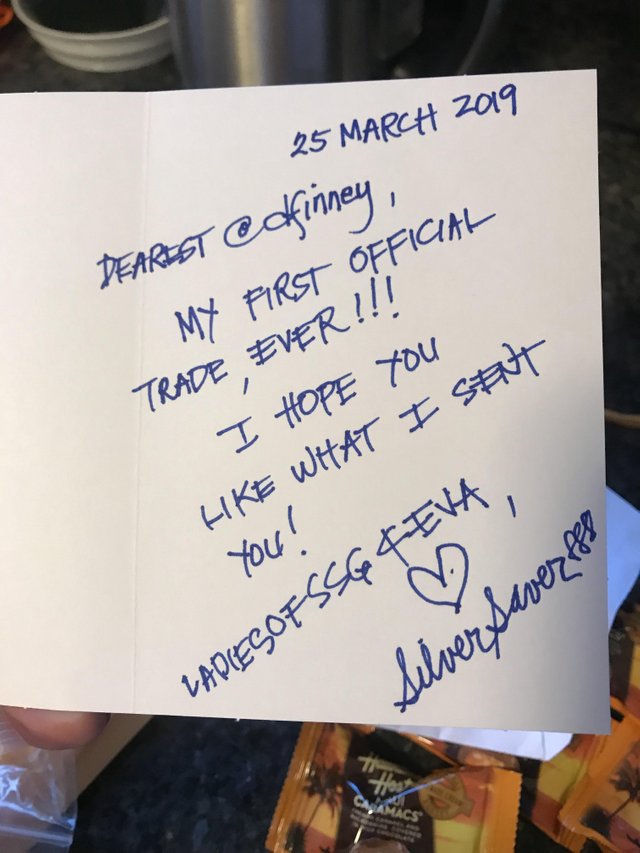 25 MARCH 2019
DEAREST @dfinney,
MY FIRST OFFICIAL
TRADE, EVER!!!
I HOPE YOU
LIKE WHAT I SENT
YOU!
LADIESOFSSG4EVA,
SilverSaver888
Host
CARAMACS